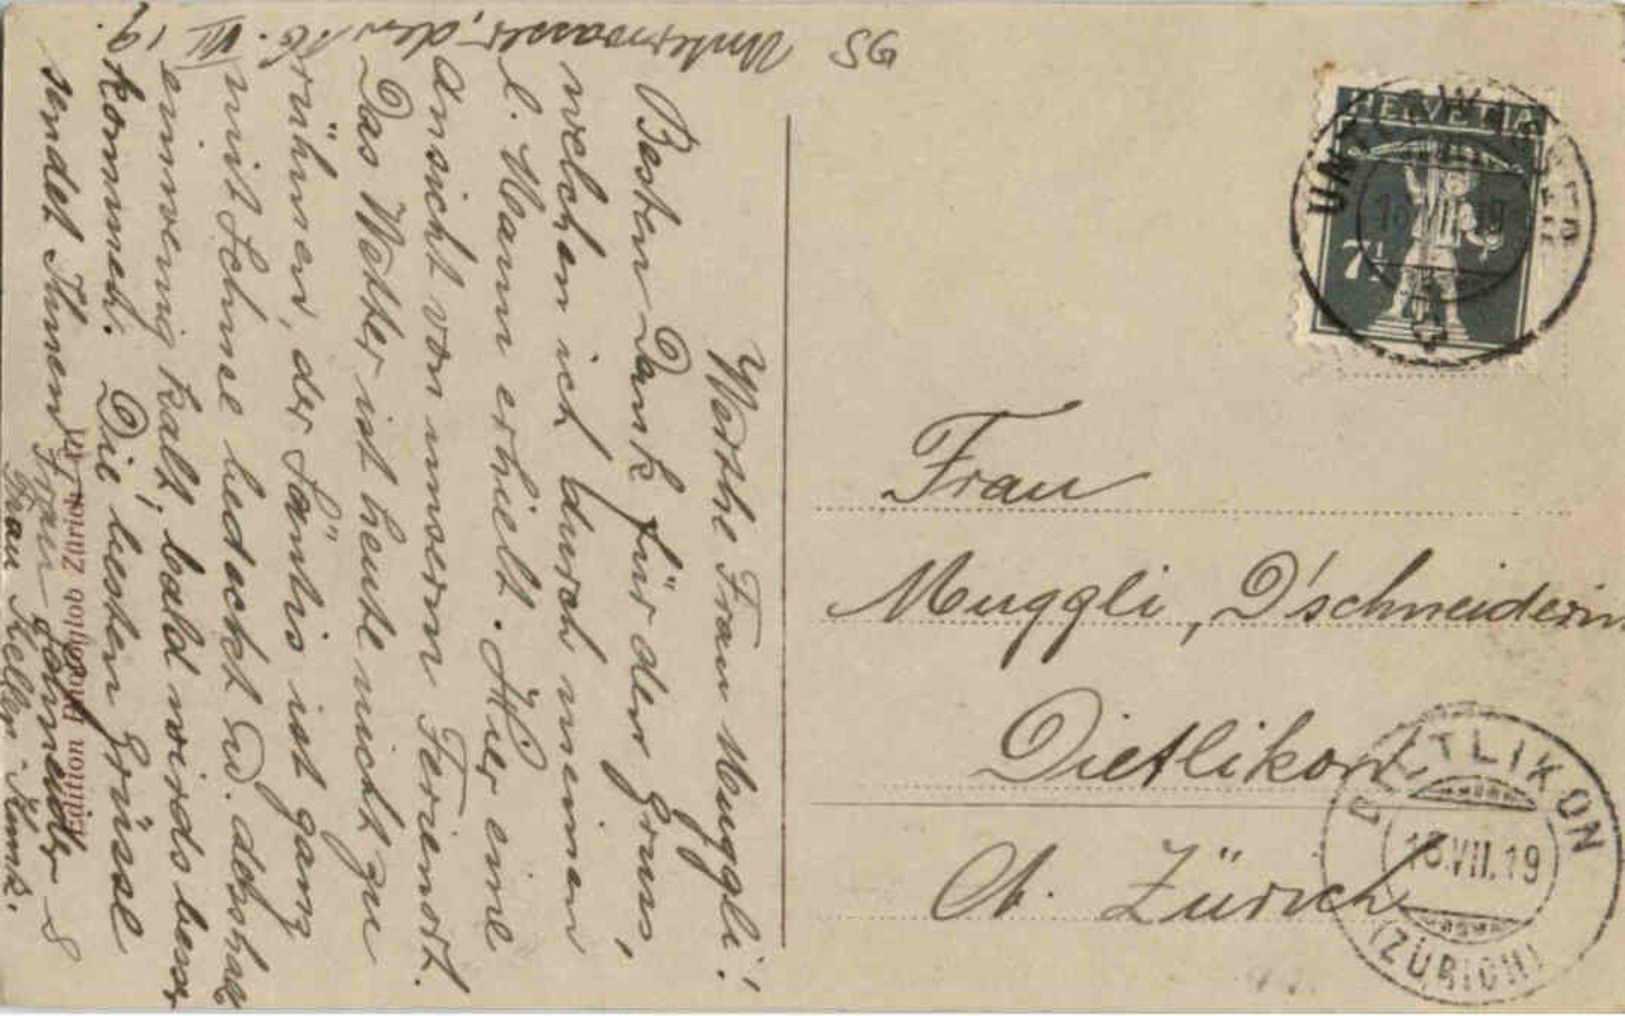 SG
Unterwasser, den 16. VII 19.
Werthe Frau Muggli!
Besten Dank für der Gruss,
welchen ich durch meinen
l. Mann erhielt. Hier eine
Ansicht von unserm Ferienort.
Das Wetter ist heute nicht zu
rühmen, der Säntis ist ganz
mit Schnee bedeckt u. deshalb
einwenig kalt, bald wirds besser
kommen. Die besten Grüsse
sendet Ihnen Frau Schneider &
Frau Keller
Edition Photoglob Zürich
HELVETIA
7½
VII 19
Frau
Muggli, D'schneiderin
Dietlikon,
Ct. Zürich
DIETLIKON
VII.19
(ZÜRICH)